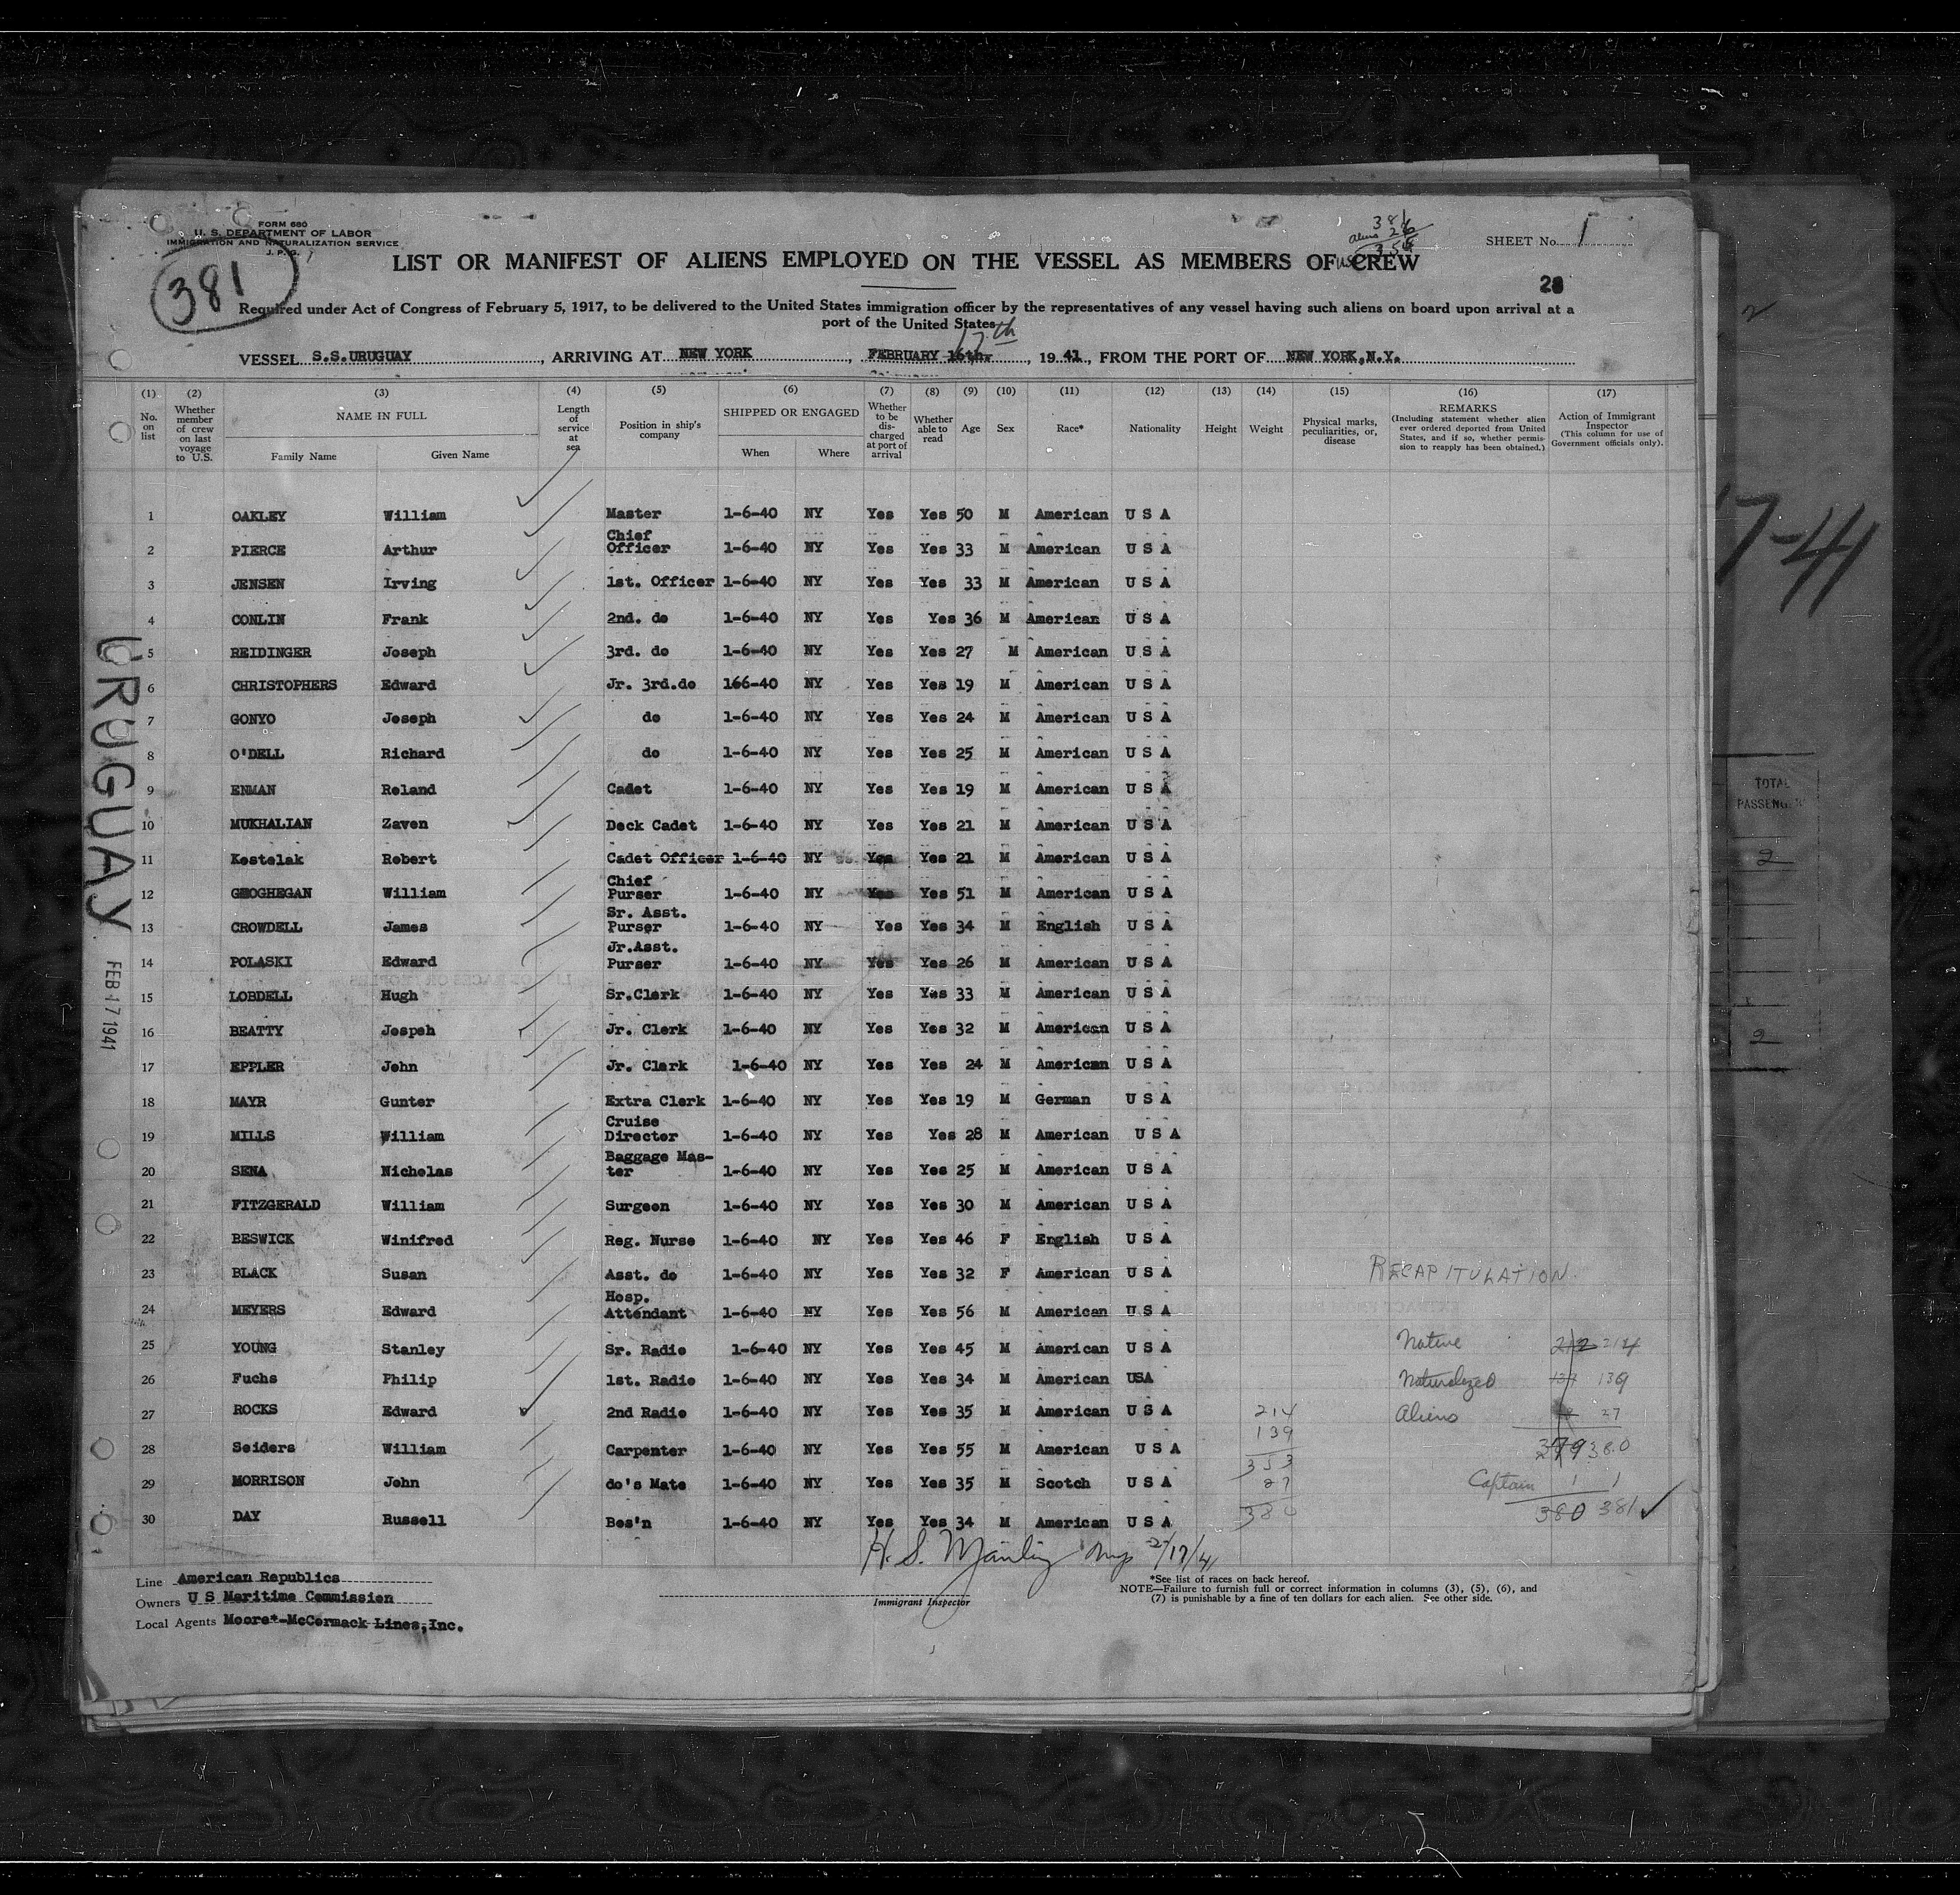 FORM 680
U. S. DEPARTMENT OF LABOR
IMMIGRATION AND NATURALIZATION SERVICE
381
381
Aliens 26
SHEET No. 1
LIST OR MANIFEST OF ALIENS EMPLOYED ON THE VESSEL AS MEMBERS OF CREW
28
Required under Act of Congress of February 5, 1917, to be delivered to the United States immigration officer by the representatives of any vessel having such aliens on board upon arrival at a
port of the United States
17th
VESSEL S.S.URUGUAY, ARRIVING AT NEW YORK, FEBRUARY 16th, 1941, FROM THE PORT OF NEW YORK,N.Y.
(1) (2) (3) (4) (5) (6) (7) (8) (9) (10) (11) (12) (13) (14) (15) (16) (17)
No. on list
Whether member of crew on last voyage to U.S.
NAME IN FULL
Family Name Given Name
Length of service at sea
Position in ship's company
SHIPPED OR ENGAGED
When Where
Whether to be discharged at port of arrival
Whether able to read
Age Sex Race* Nationality Height Weight
Physical marks, peculiarities, or, disease
REMARKS
(Including statement whether alien ever ordered deported from United States, and if so, whether permission to reapply has been obtained.)
Action of Immigrant Inspector
(This column for use of Government officials only).
1 OAKLEY William Master 1-6-40 NY Yes Yes 50 M American U S A
2 PIERCE Arthur Chief Officer 1-6-40 NY Yes Yes 33 M American U S A
3 JENSEN Irving 1st. Officer 1-6-40 NY Yes Yes 33 M American U S A
4 CONLIN Frank 2nd. do 1-6-40 NY Yes Yes 36 M American U S A
5 REIDINGER Joseph 3rd. do 1-6-40 NY Yes Yes 27 M American U S A
6 CHRISTOPHERS Edward Jr. 3rd.do 166-40 NY Yes Yes 19 M American U S A
7 GONYO Joseph do 1-6-40 NY Yes Yes 24 M American U S A
8 O'DELL Richard do 1-6-40 NY Yes Yes 25 M American U S A
9 ENMAN Roland Cadet 1-6-40 NY Yes Yes 19 M American U S A
10 MUKHALIAN Zaven Deck Cadet 1-6-40 NY Yes Yes 21 M American U S A
11 Kostelak Robert Cadet Officer 1-6-40 NY Yes Yes 21 M American U S A
12 GEOGHEGAN William Chief Purser 1-6-40 NY Yes Yes 51 M American U S A
13 CROWDELL James Sr. Asst. Purser 1-6-40 NY Yes Yes 34 M English U S A
14 POLASKI Edward Jr.Asst. Purser 1-6-40 NY Yes Yes 26 M American U S A
15 LOBDELL Hugh Sr.Clerk 1-6-40 NY Yes Yes 33 M American U S A
16 BEATTY Jospeh Jr. Clerk 1-6-40 NY Yes Yes 32 M American U S A
17 EPPLER John Jr. Clerk 1-6-40 NY Yes Yes 24 M American U S A
18 MAYR Gunter Extra Clerk 1-6-40 NY Yes Yes 19 M German U S A
19 MILLS William Cruise Director 1-6-40 NY Yes Yes 28 M American U S A
20 SENA Nicholas Baggage Mas-ter 1-6-40 NY Yes Yes 25 M American U S A
21 FITZGERALD William Surgeon 1-6-40 NY Yes Yes 30 M American U S A
22 BESWICK Winifred Reg. Nurse 1-6-40 NY Yes Yes 46 F English U S A
23 BLACK Susan Asst. do 1-6-40 NY Yes Yes 32 F American U S A
RECAPITULATION
24 MEYERS Edward Hosp. Attendant 1-6-40 NY Yes Yes 56 M American U S A
25 YOUNG Stanley Sr. Radio 1-6-40 NY Yes Yes 45 M American U S A Native 212 214
26 Fuchs Philip 1st. Radio 1-6-40 NY Yes Yes 34 M American USA Naturalized 139
27 ROCKS Edward 2nd Radio 1-6-40 NY Yes Yes 35 M American U S A 214 Aliens 27
139
28 Seiders William Carpenter 1-6-40 NY Yes Yes 55 M American U S A 353 379 380
29 MORRISON John do's Mate 1-6-40 NY Yes Yes 35 M Scotch U S A 27 Captain 1 1
30 DAY Russell Bos'n 1-6-40 NY Yes Yes 34 M American U S A 380 380 381
URUGUAY
FEB 17 1941
7-41
TOTAL
PASSENG
2
2
2
Line American Republics
Owners U S Maritime Commission
Local Agents Moore*-McCormack Lines,Inc.
H. S. 2/17/41
Immigrant Inspector
*See list of races on back hereof.
NOTE—Failure to furnish full or correct information in columns (3), (5), (6), and
(7) is punishable by a fine of ten dollars for each alien. See other side.